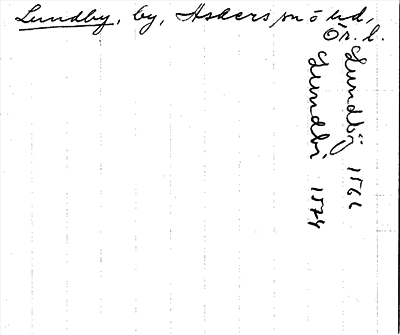 Lundby, by, Askers sn ö hd,
Ör. l.
Lundbÿ 1566
Lundbi 1574